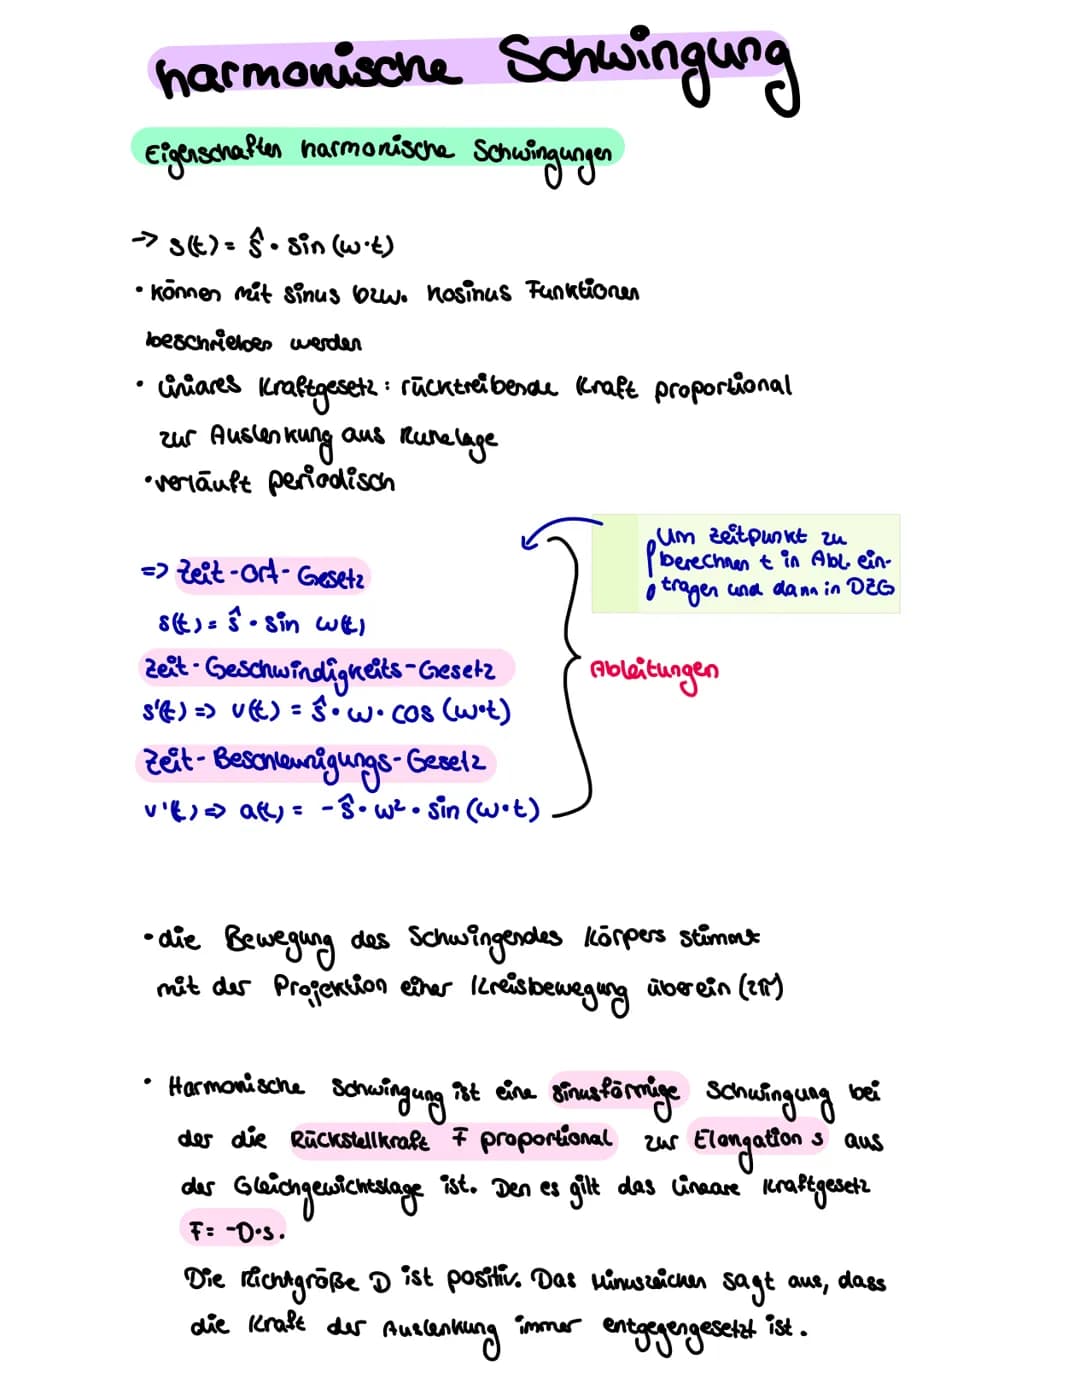 harmonische Schwingung
Eigenschaften harmonische Schwingungen
-> s(t) = ŝ • sin (ω·t)
• können mit sinus bzw. Kosinus Funktionen
beschrieben werden
• liniares Kraftgesetz : rücktreibende Kraft proportional
zur Auslenkung aus Ruhelage
• verläuft periodisch
Um Zeitpunkt zu
berechnen t in Abl. ein-
tragen und dann in DZG
=> Zeit-Ort-Gesetz
s(t) = ŝ • sin ω(t)
Zeit-Geschwindigkeits-Gesetz
s'(t) => v(t) = ŝ • ω • cos (ω•t)
Zeit-Beschleunigungs-Gesetz
v'(t) => a(t) = -ŝ • ω² • sin (ω•t)
Ableitungen
• die Bewegung des Schwingendes Körpers stimmt
mit der Projektion einer Kreisbewegung überein (2π)
• Harmonische Schwingung ist eine sinusförmige Schwingung bei
der die Rückstellkraft F proportional zur Elongation s aus
der Gleichgewichtslage ist. Den es gilt das lineare Kraftgesetz
F = -D•s.
Die Richtgröße D ist positiv. Das Minuszeichen sagt aus, dass
die Kraft der Auslenkung immer entgegengesetzt ist.